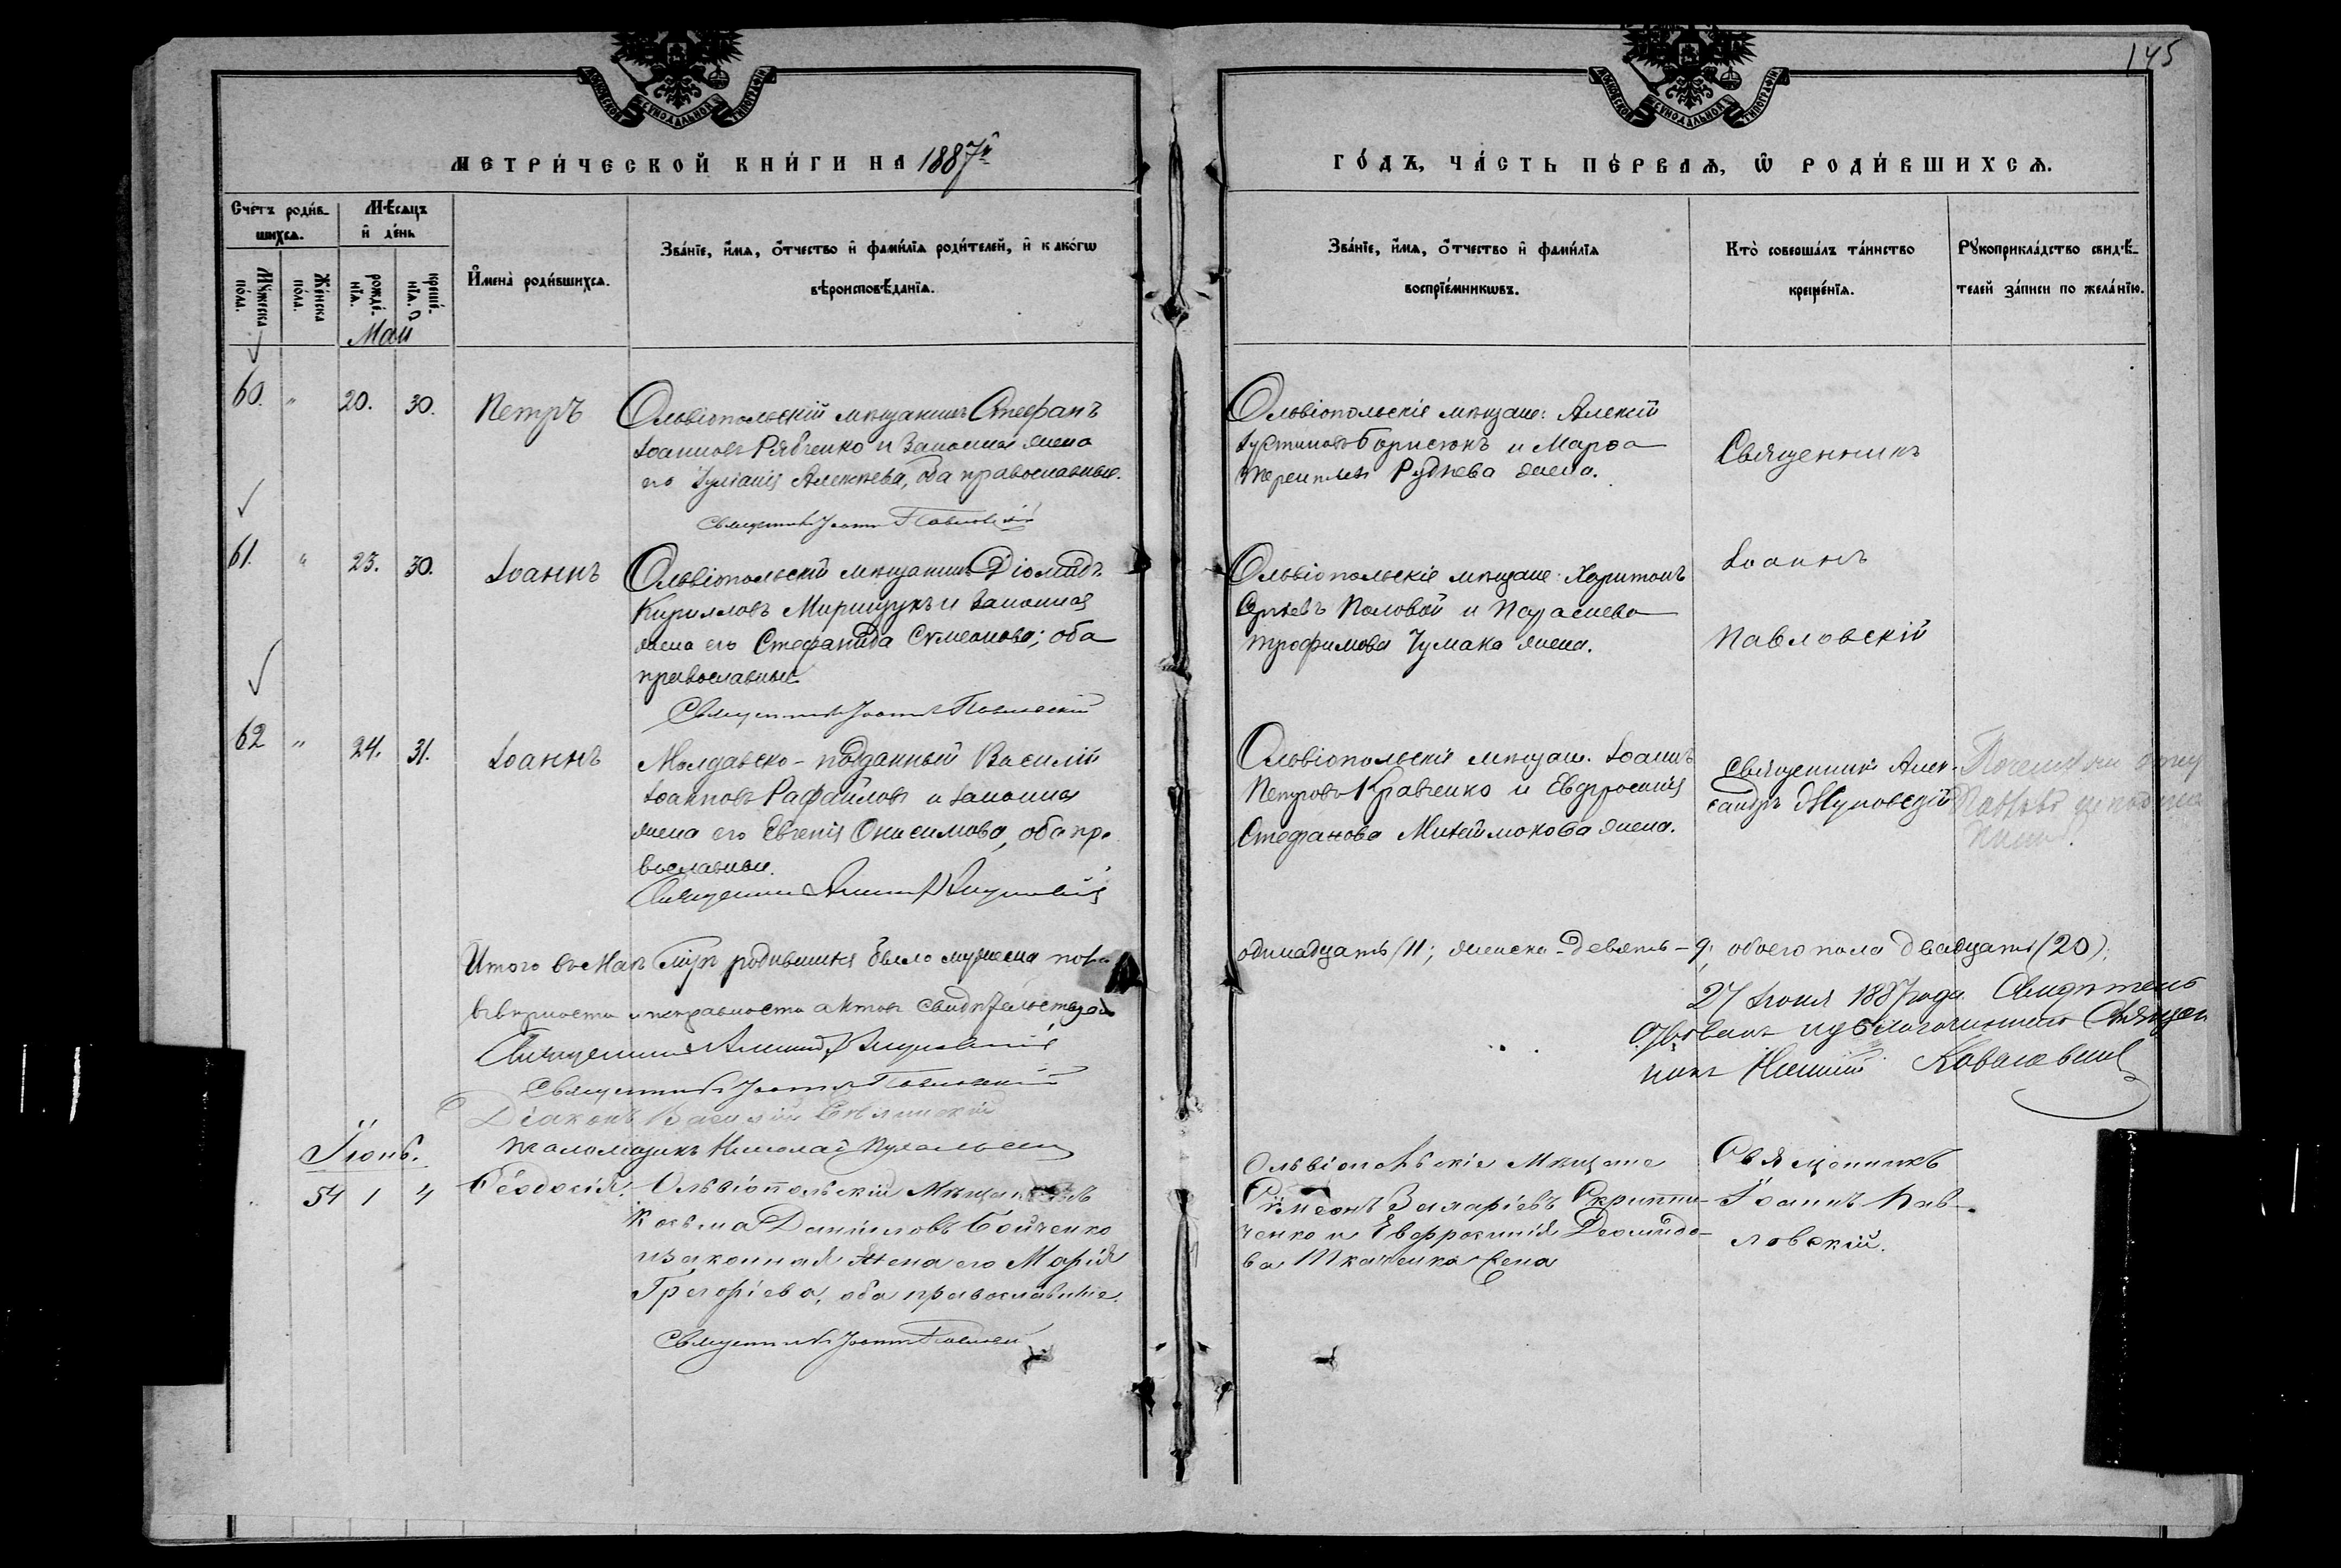 145
МОСКОВСКОЙ СѴНОДАЛЬНОЙ ТИПОГРАФІИ
МОСКОВСКОЙ СѴНОДАЛЬНОЙ ТИПОГРАФІИ
МЕТРИ́ЧЕСКОЙ КНИ́ГИ НА 1887й
ГО́ДЪ, ЧА́СТЬ ПЕ́РВАѦ, Ѡ РОДИ́ВШИХСѦ.
Сче́тъ роди́в-
шихсѧ.
Мѣсѧцъ
и де́нь
Мꙋ́жеска по́ла.
Же́нска по́ла.
рожде́-нїѧ.
креще́-нїѧ.
И́мена роди́вшихсѧ.
Зва́нїе, и́мѧ, о́тчество и фами́лїѧ роди́телей, и како́гѡ
вѣроисповѣ́данїѧ.
Зва́нїе, и́мѧ, о́тчество и фами́лїѧ
воспрїе́мникѡвъ.
Кто̀ соверша́лъ та́инство
креще́нїѧ.
Рꙋкоприкла́дство свидѣ́-
телей за́писи по жела́нїю.
Май
60. " 20. 30. Петръ
Ольвіопольскій мѣщанинъ Стефанъ
Іоанновъ Рябченко и законная жена
его Іуліанія Алексѣева, оба православные.
Священникъ Іоаннъ Павловскій
Ольвіопольскіе мѣщане: Алексій
Іустиновъ Борисюкъ и Марѳа
Руднева жена.
Священникъ
Іоаннъ
Павловскій
61. " 23. 30. Іоаннъ
Ольвіопольскій мѣщанинъ Діомидъ
Кирилловъ Мирищукъ и законная
жена его Стефанида Сѵмеонова; оба
православные
Священникъ Іоаннъ Павловскій
Ольвіопольскіе мѣщане: Харитонъ
Сергіевъ Половой и Параскева
Трофимова Чумака жена.
62 " 24. 31. Іоаннъ
Молдавско-подданный Василій
Іоанновъ Рафаиловъ и законная
жена его Евгенія Онисимова, оба пра
вославные.
Священникъ
Ольвіопольскіе мѣщане. Іоаннъ
Петровъ Кравченко и Евфросинія
Стефанова жена.
Священникъ Алек-
сандръ
Итого въ Маѣ мцѣ родившихся было мужеска пола
одинадцать (11; женска - девять - 9; обоего пола двадцать (20).
вѣрности и исправности актовъ свидѣтельствуемъ
Священникъ
Священникъ Іоаннъ Павловскій
Діаконъ Василій
Псаломщикъ Николай
27 Іюня 1887 года
Священ
никъ
Іюнь.
54 1 4 Ѳеодосія.
Ольвіопольскій Мѣщанинъ
Косьма Даниловъ Бойченко
и законная жена его Марія
Григоріева, оба православные.
Священникъ Іоаннъ Павловскій
Ольвіопольскіе Мѣщане
Сѵмеонъ Захаріевъ Скрипни-
ченко и Евфросинія Деомидо-
ва Ткаченка жена
Священникъ
Іоаннъ Пав-
ловскій.